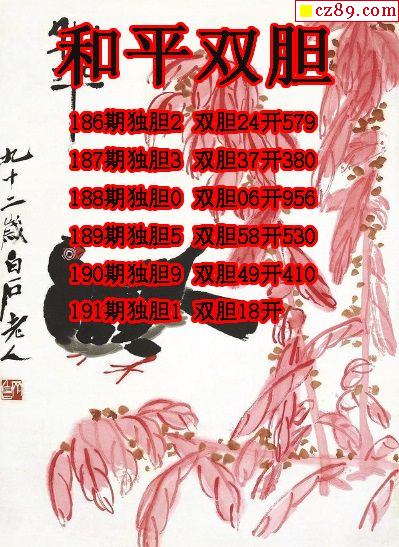 cz89.com
和平双胆
186期独胆2 双胆24开579
187期独胆3 双胆37开380
188期独胆0 双胆06开956
189期独胆5 双胆58开530
190期独胆9 双胆49开410
191期独胆1 双胆18开
九十二歲白石老人